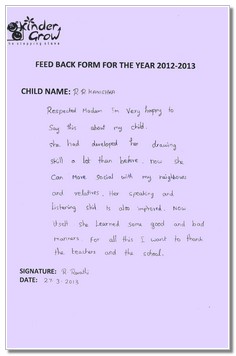 Kinder
Grow
FEED BACK FORM FOR THE YEAR 2012-2013
CHILD NAME: R.R.
Respected Madam I'm very happy to
Say this about my child.
she had developed for drawing
skill a lot than before, now she
Can More social with my neighbours
and relatives. Her speaking and
listening skill is also improved. Now
she learned some good and bad
manners. For all this I want to thank
the teachers and the school.
SIGNATURE: R.
DATE: 27.3.2013